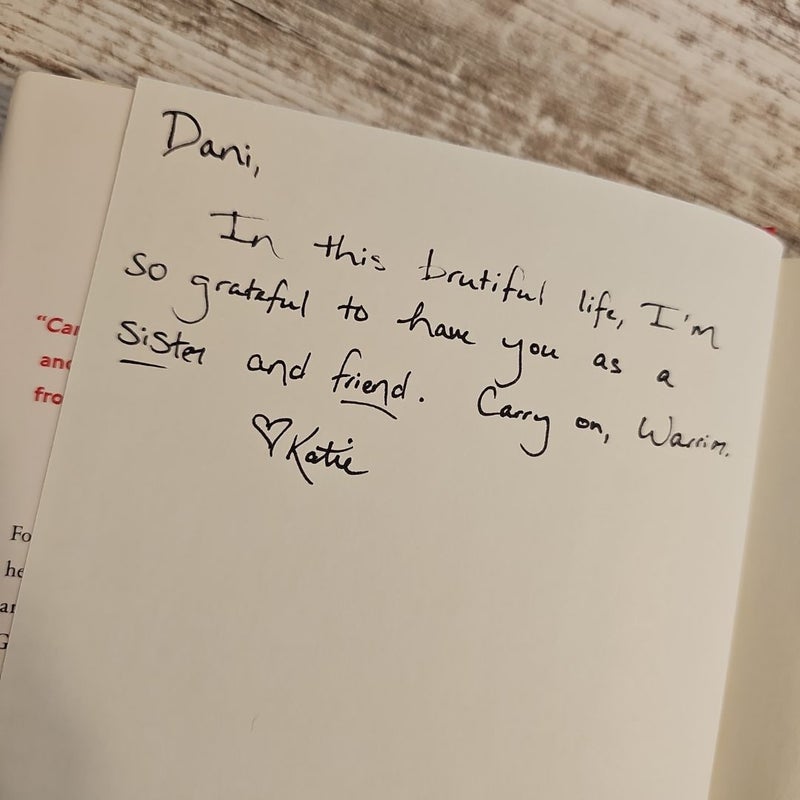 Dani,
In this brutiful life, I'm
so grateful to have you as a
sister and friend. Carry on, Warrior.
♡Katie
“Car
and
fro
Fo
he
ar
G